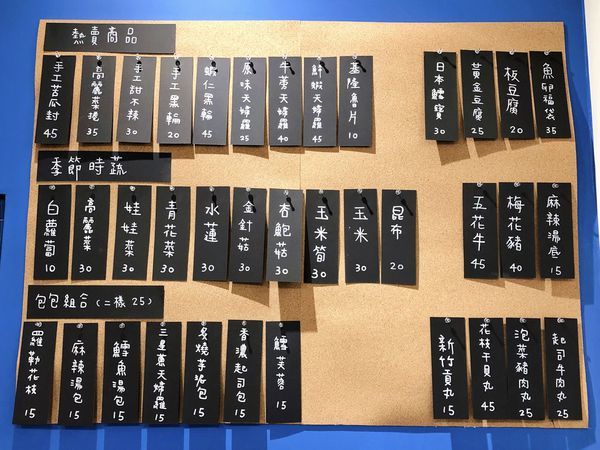 熱賣商品
手工苦瓜封 45
高麗菜捲 35
手工甜不辣 30
手工黑輪 20
蝦仁黑輪 45
原味天婦羅 25
牛蒡天婦羅 40
鮮蝦天婦羅 45
基隆魚片 10
日本鱈寶 30
黃金豆腐 25
板豆腐 20
魚卵福袋 35
季節時蔬
白蘿蔔 10
高麗菜 30
娃娃菜 30
青花菜 30
水蓮 30
金針菇 30
杏鮑菇 30
玉米筍 30
玉米 30
昆布 20
五花牛 45
梅花豬 40
麻辣湯底 15
包包組合(二樣25)
羅勒花枝 15
麻辣湯包 15
鱈魚湯包 15
三星蔥天婦羅 15
炙燒芋泥包 15
香濃起司包 15
鱈芙蓉 15
新竹貢丸 15
花枝干貝丸 45
泡菜豬肉丸 25
起司牛肉丸 25